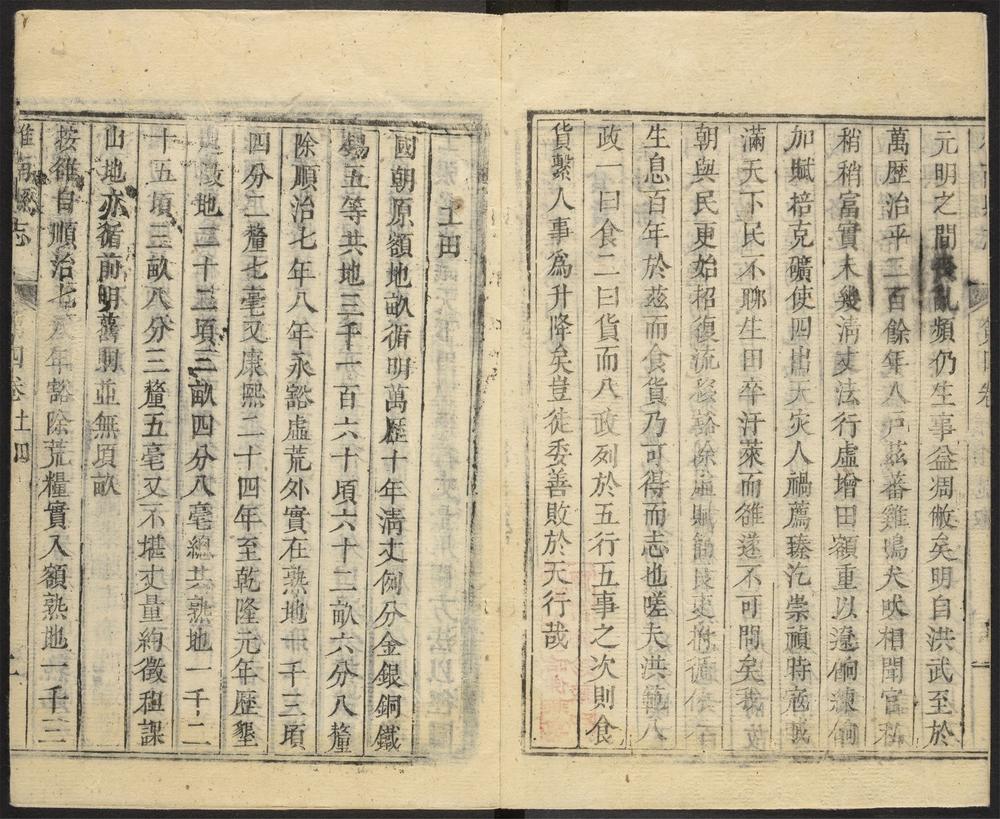 元明之間喪亂頻仍生事益凋敝矣明自洪武至於
萬歷治平二百餘年人戶茲蕃雞鳴犬吠相聞富私
稍稍富實未幾清丈法行虛增田額重以遼餉練餉
加賦掊克礦使四出天灾人禍薦臻洊崇禎時寇賊
滿天下民不聊生田卒汙萊而雒遂不可問矣我
朝與民更始招復流豁除虛賦良吏
生息百年於茲而食貨乃可得而志也嗟夫洪範八
政一曰食二曰貨而八政列於五行五事之次則食
貨繫人事為升降矣豈徒委善敗於天行哉
土田
國朝原額地畝循明萬歷十年清丈例分金銀銅鐵
錫五等共地三千一百六十頃六十二畝六分八釐
除順治七年八年永豁虛荒外實在熟地一千三頃
四分二釐七毫又康熙二十四年至乾隆元年歷墾
地二十三頃三畝四分八毫總共熟地一千二
十五頃三畝八分三釐五毫又不堪丈量約徵租課
山地亦循前明舊則並無頃畝
按雒自順治七八年豁除荒糧實入額熟地一千三
雒南縣志
四卷土田
一